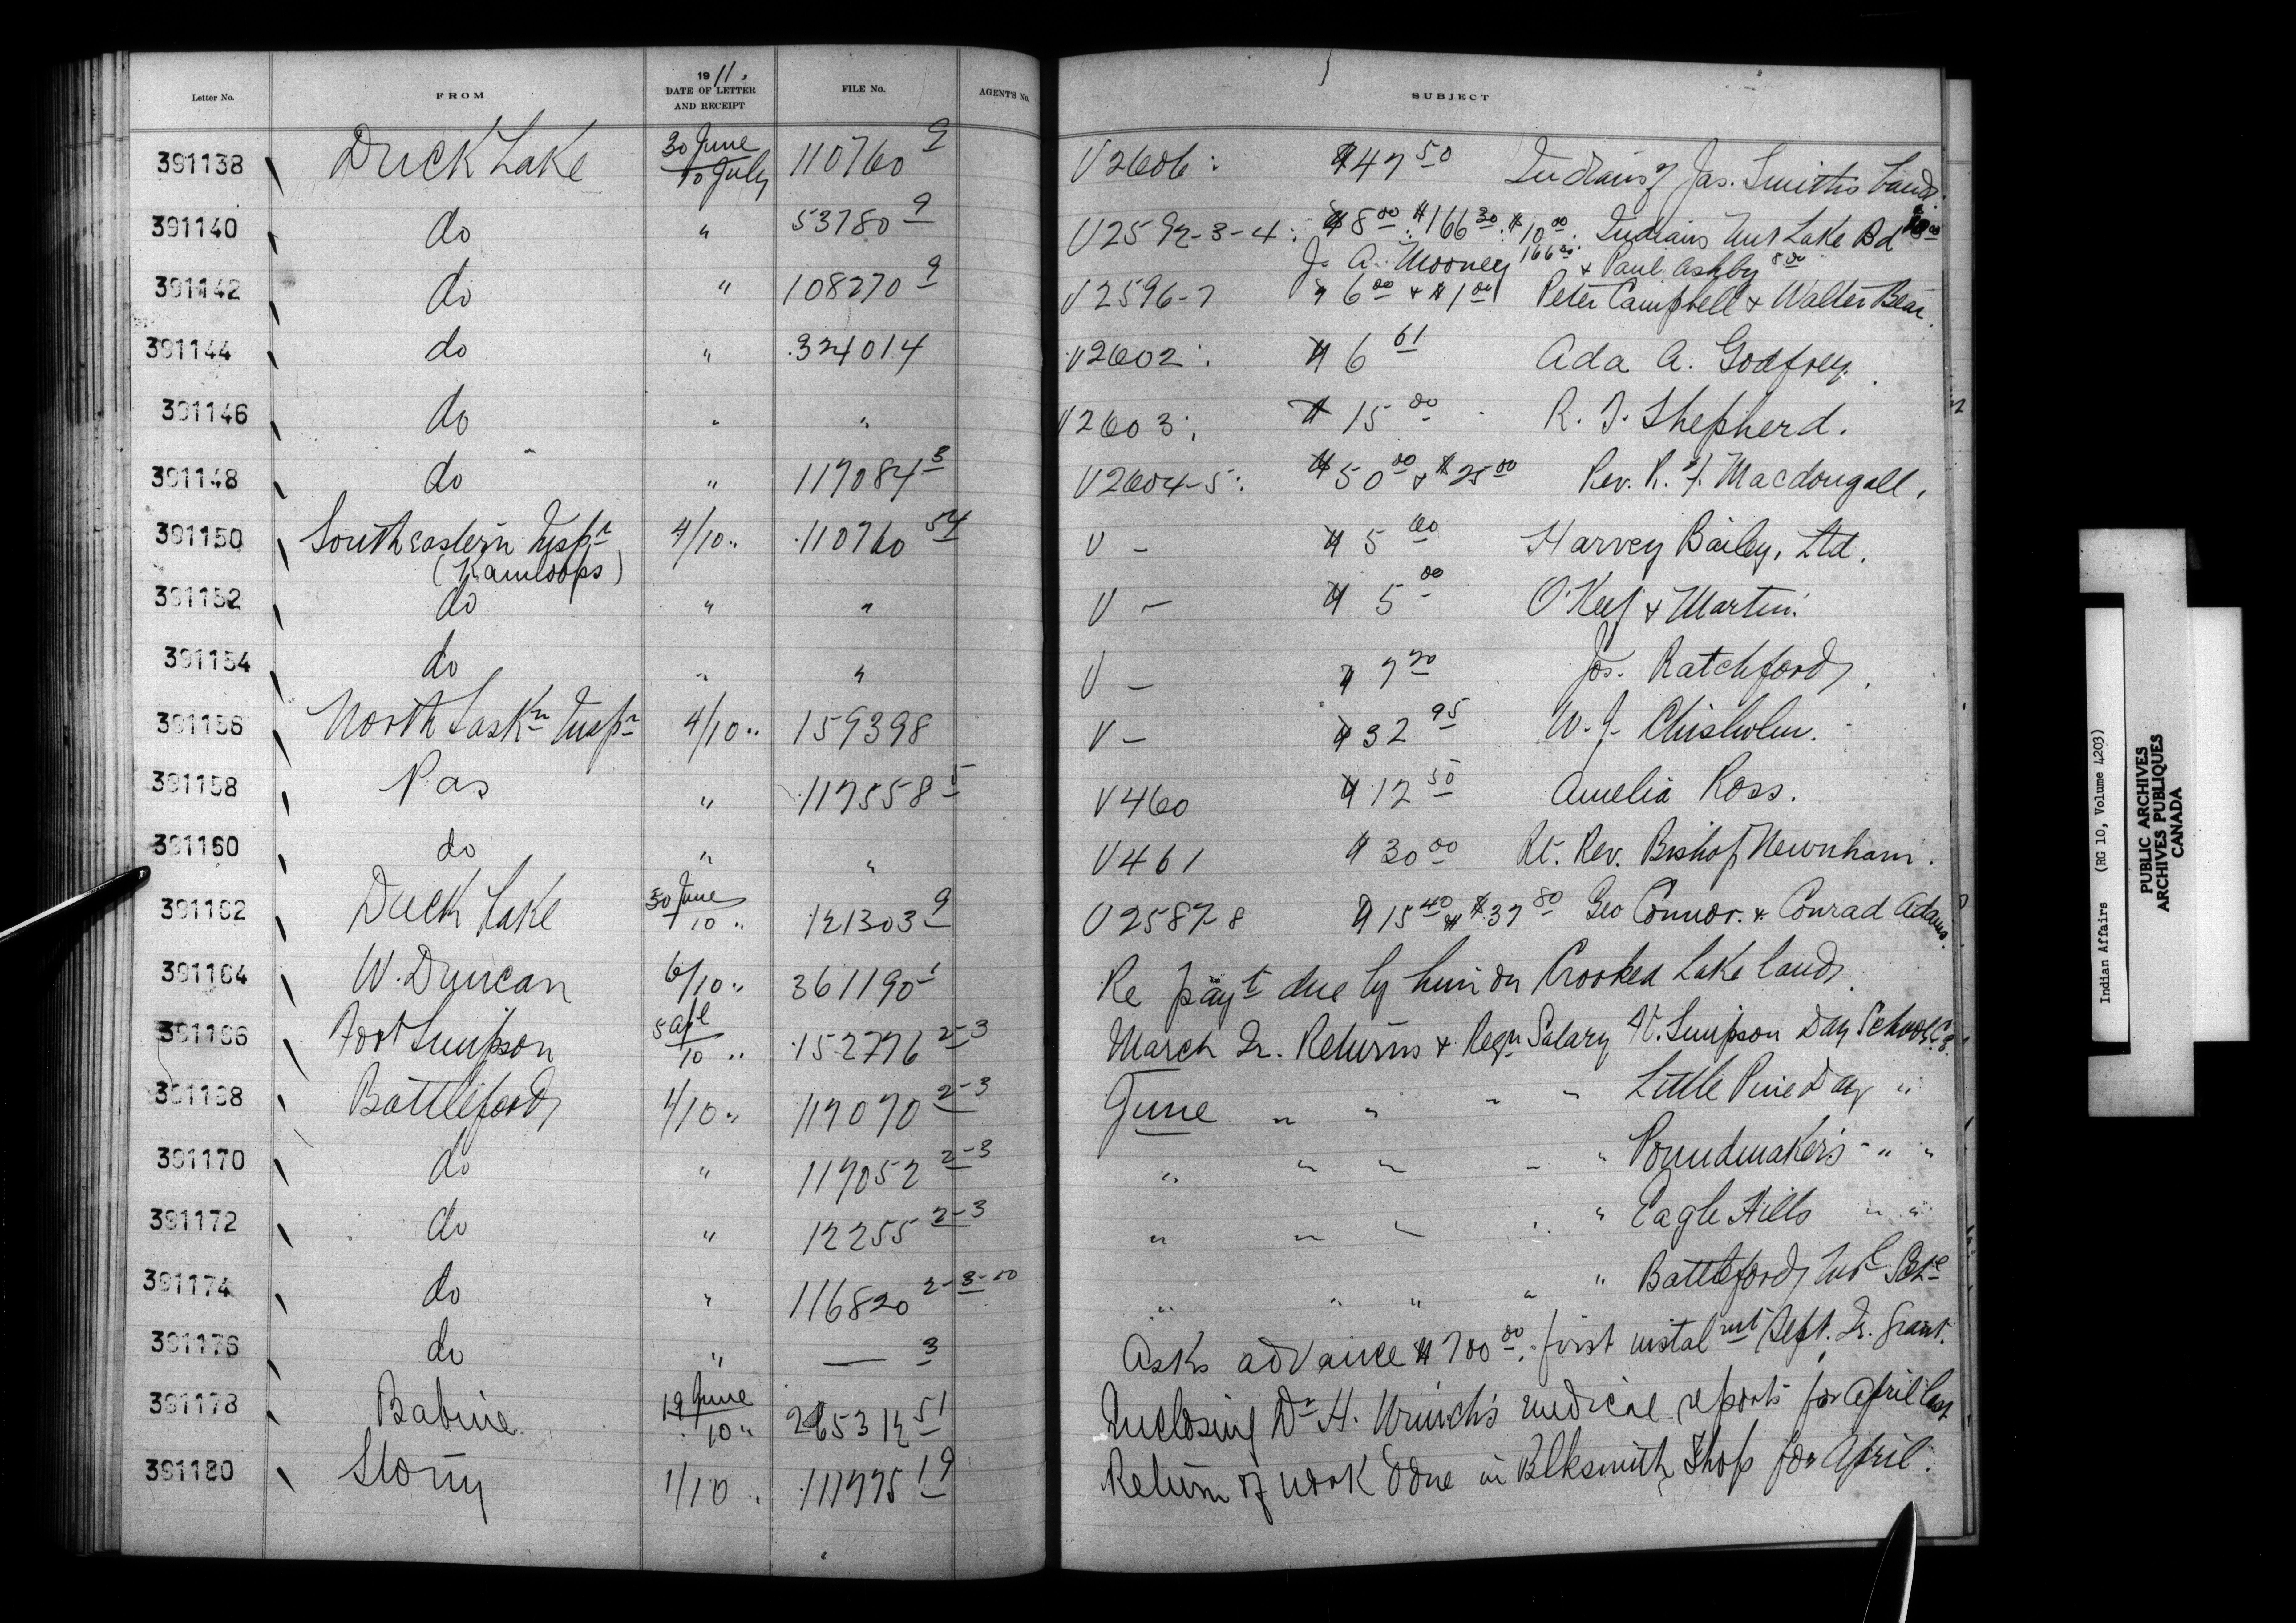 Letter No. FROM 1911. DATE OF LETTER AND RECEIPT FILE No. AGENT'S No. SUBJECT
391138 Duck Lake 30 June / 10 July 110760 9 V 2606: $47 50 Indians of Jas. Smith's band.
391140 do " 53780 9 V 2592-3-4: $8 00: $166 30: $10 00: Indians Nut Lake Bd 10 00
J. A. Mooney 166 30 & Paul Ashby 8 00
391142 do " 108270 9 V 2596-7 $6 00 & $1 00 Peter Campbell & Walter Bear.
391144 do " 324014 V 2602: $6 61 Ada A. Godfrey.
391146 do " " V 2603: $15 00 R. J. Shepherd.
391148 do " 117084 3 V 2604-5: $50 00 & $25 00 Rev. R. F. Macdougall.
391150 South eastern Inspr 4/10 " 110760 54 V - $5 00 Harvey Bailey, Ltd.
(Kamloops)
391152 do " " V - $5 00 O'Keef & Martin.
391154 do " " V - $7 20 Jos. Ratchford.
391156 North Saskn Inspr 4/10 " 159398 V - $32 95 W. J. Chisholm.
391158 Pas " 117558 5 V 460 $12 50 Amelia Ross.
391160 do " " V 461 $30 00 Rt. Rev. Bishop Newnham.
391162 Duck Lake 30 June / 10 " 121303 9 V 2587-8 $15 40 & $37 80 Geo Connor. & Conrad Adams.
391164 W. Duncan 6/10 " 361190 1 Re payt due by him on Crooked Lake lands.
391166 Fort Simpson 5 Apl / 10 " 152776 2-3 March Qr. Returns & Reqn Salary Ft. Simpson Day School
391168 Battleford 4/10 " 117070 2-3 June " " " " Little Pine Day "
391170 do " 117052 2-3 " " " " " Poundmaker's " "
391172 do " 12255 2-3 " " " " " Eagle Hills " "
391174 do " 116820 2-3-10 " " " " " Battleford Ind Schl
391176 do " — 3 Asks advance $700 00, first instalmt Sept. Qr. grant.
391178 Babine 19 June / 10 " 265312 51 Enclosing Dr H. Wrinch's medical reports for April last
391180 Stony 1/10 " 111775 19 Return of work done in Blksmith Shop for April.
Indian Affairs (RG 10, Volume 4203)
PUBLIC ARCHIVES
ARCHIVES PUBLIQUES
CANADA